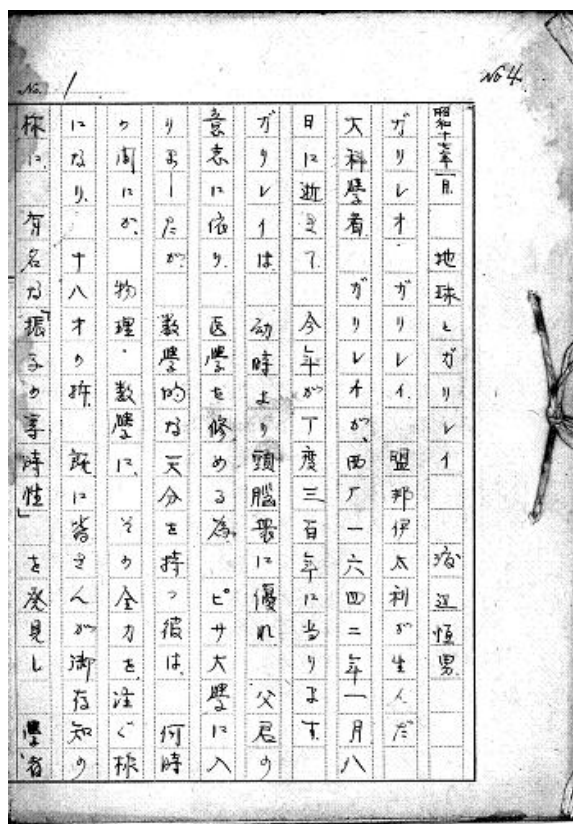 No 4.
No. 1
昭和十七年一月 地球とガリレイ 渡辺恒男
ガリレオ・ガリレイ、盟邦伊太利が生んだ
大科學者 ガリレイが、西丁一六四二年一月八
日に逝きて 今年が丁度三百年に当ります。
ガリレイは 幼時より頭腦衆に優れ 父君の
意志に依り、医學を修める為、ピサ大學に入
りましたが、数學的な天分を持つ彼は、何時
の間にか、物理・数學に、その全力を注ぐ様
になり、十八才の時、既に皆さんが御存知の
様に、有名な「振子の等時性」を発見し 學者